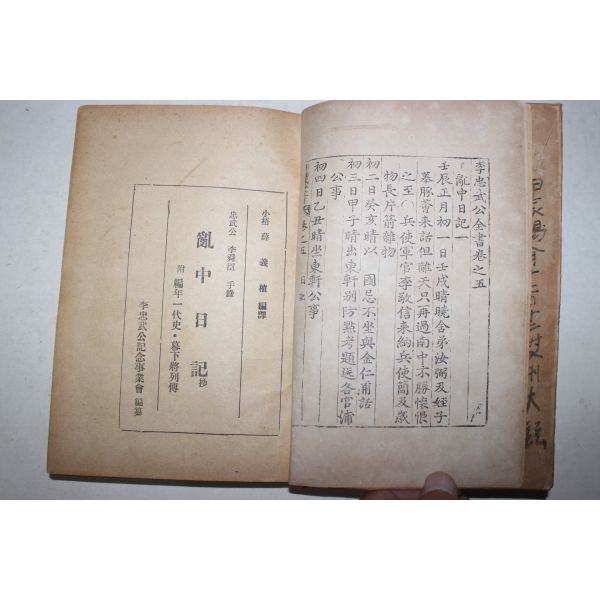 李忠武公全書卷之五
亂中日記一
壬辰正月初一日壬戌晴曉舍弟汝弼及姪子
菶豚薈來話但離天只再過南中不勝懷恨
之至〇兵使軍官李敬信來納兵使簡及歲
物長片箭雜物
初二日癸亥晴以 國忌不坐與金仁甫話
初三日甲子晴出東軒別防點考題送各官浦
公事
初四日乙丑晴坐東軒公事
小梧 薛義植 編譯
忠武公 李舜臣 手錄
亂中日記抄
附 編年一代史・幕下將列傳
李忠武公記念事業會 編纂